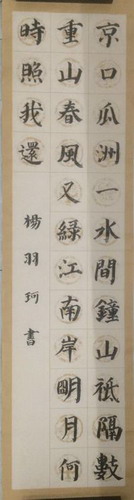 京口瓜洲一水間鐘山祗隔數
重山春風又綠江南岸明月何
時照我還
楊羽珂書